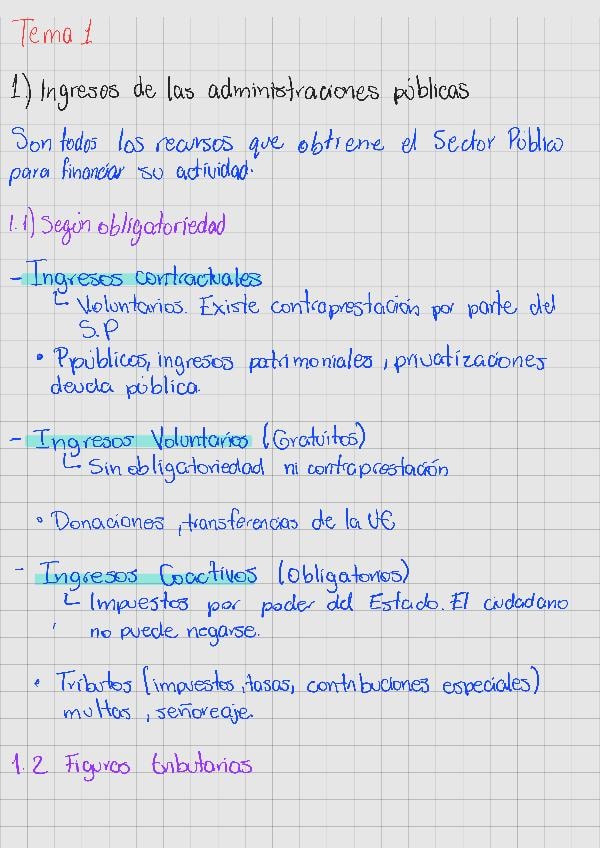 Tema 1
1) Ingresos de las administraciones públicas
Son todos los recursos que obtiene el Sector Público
para financiar su actividad.
1.1) Según obligatoriedad
- Ingresos contractuales
↳ Voluntarios. Existe contraprestación por parte del
S.P
• Ppúblicos, ingresos patrimoniales, privatizaciones
deuda pública.
- Ingresos Voluntarios (Gratuitos)
↳ Sin obligatoriedad ni contraprestación
• Donaciones, transferencias de la UE
- Ingresos Coactivos (Obligatorios)
↳ Impuestos por poder del Estado. El ciudadano
no puede negarse.
• Tributos (impuestos, tasas, contribuciones especiales)
multas, señoreaje.
1.2 Figuras tributarias